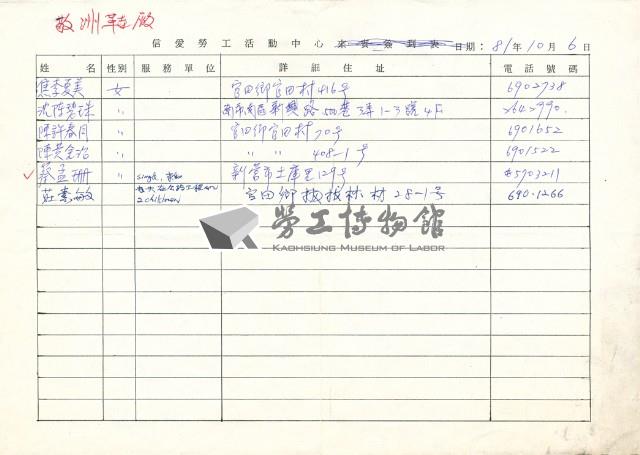 敬洲鞋廠
信愛勞工活動中心來賓簽到表 日期：81年10月6日
姓名 性別 服務單位 詳細住址 電話號碼
焦李夏美 女 官田鄉官田村416號 6902738
沈陈碧珠 〃 南市南區新興路500巷3弄1-3號4F 2642990
陳許春月 〃 官田鄉官田村70號 6901652
陳黃金治 〃 〃 〃 408-1號 6901522
蔡孟珊 〃 single, 新營市土庫里129号 5703211
莊素敏 2 children 官田鄉拔拔林村28-1号 690-1266
勞工博物館
KAOHSIUNG MUSEUM OF LABOR